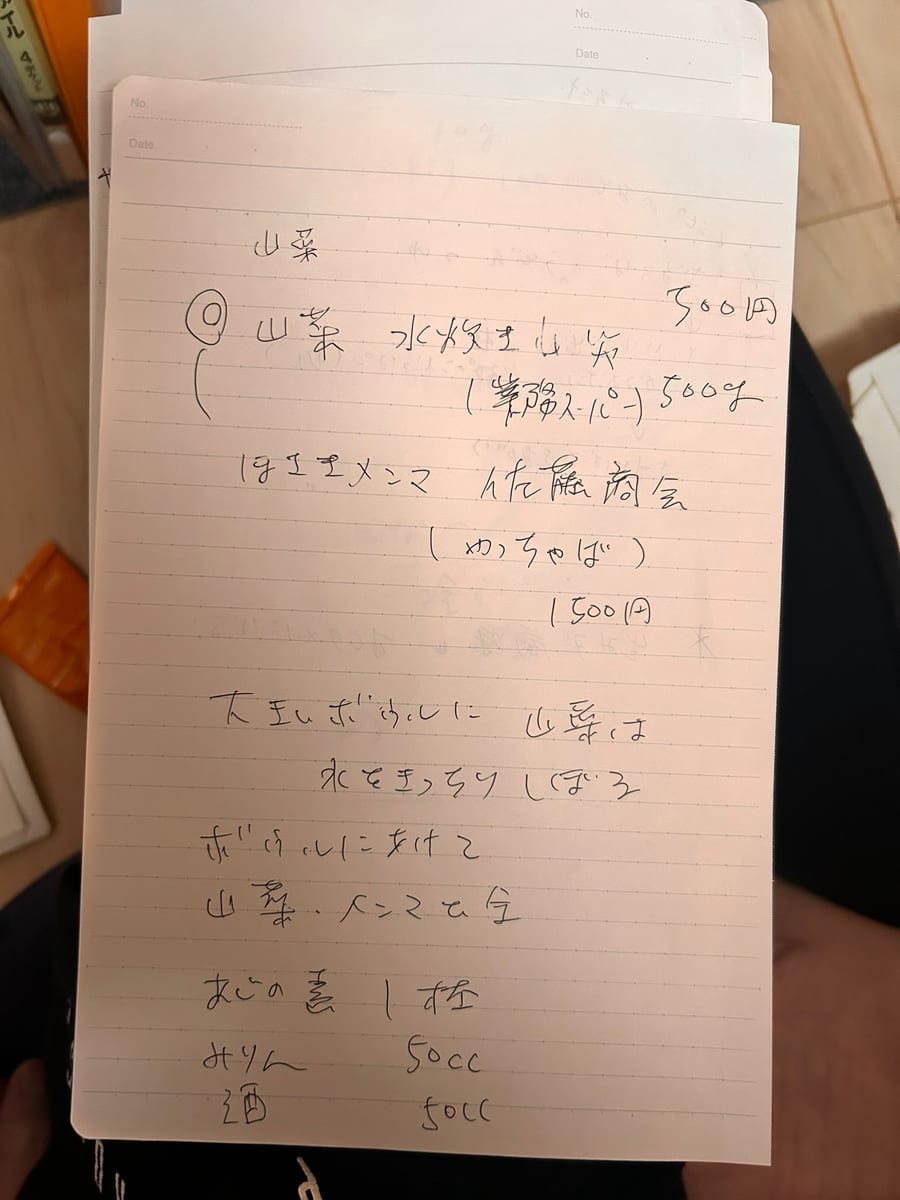 No.
Date
No.
Date
山菜
500円
◎ 山菜 水炊き山菜
(業務スーパー) 500g
ほさきメンマ 佐藤商会
(やっちゃば)
1500円
大きいボウルに 山菜は
水をきっちりしぼる
ボウルにあけて
山菜・メンマを全
あごの 1
みりん 50cc
酒 50cc